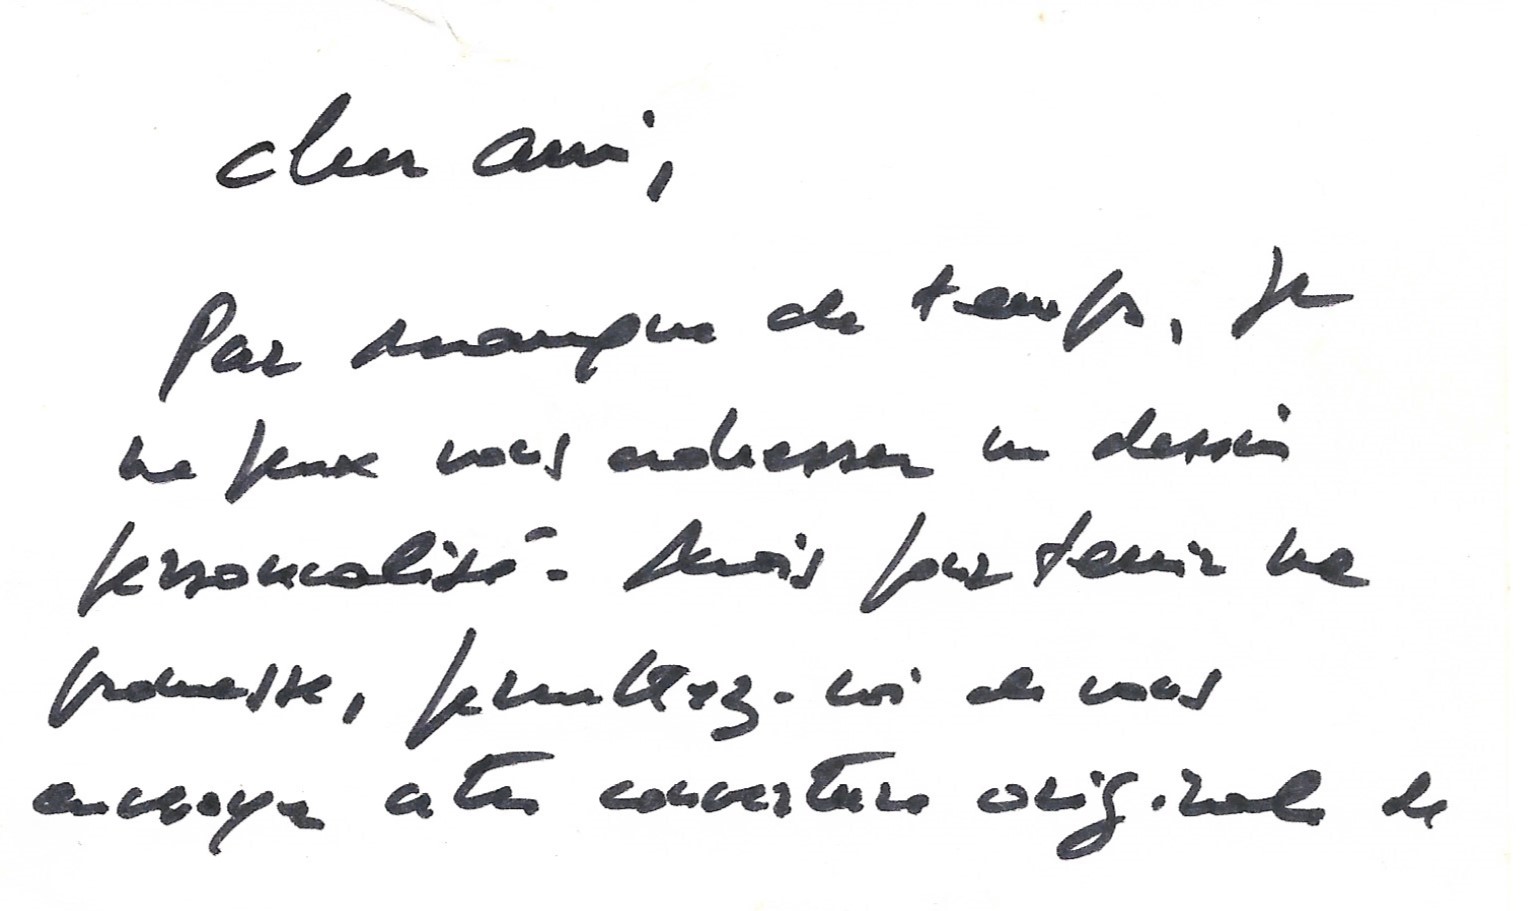 cher ami,
Par manque de temps, je
ne peux vous adresser un dessin
personnalisé. Mais pour tenir ma
promesse, permettez-moi de vous
envoyer cette couverture originale de